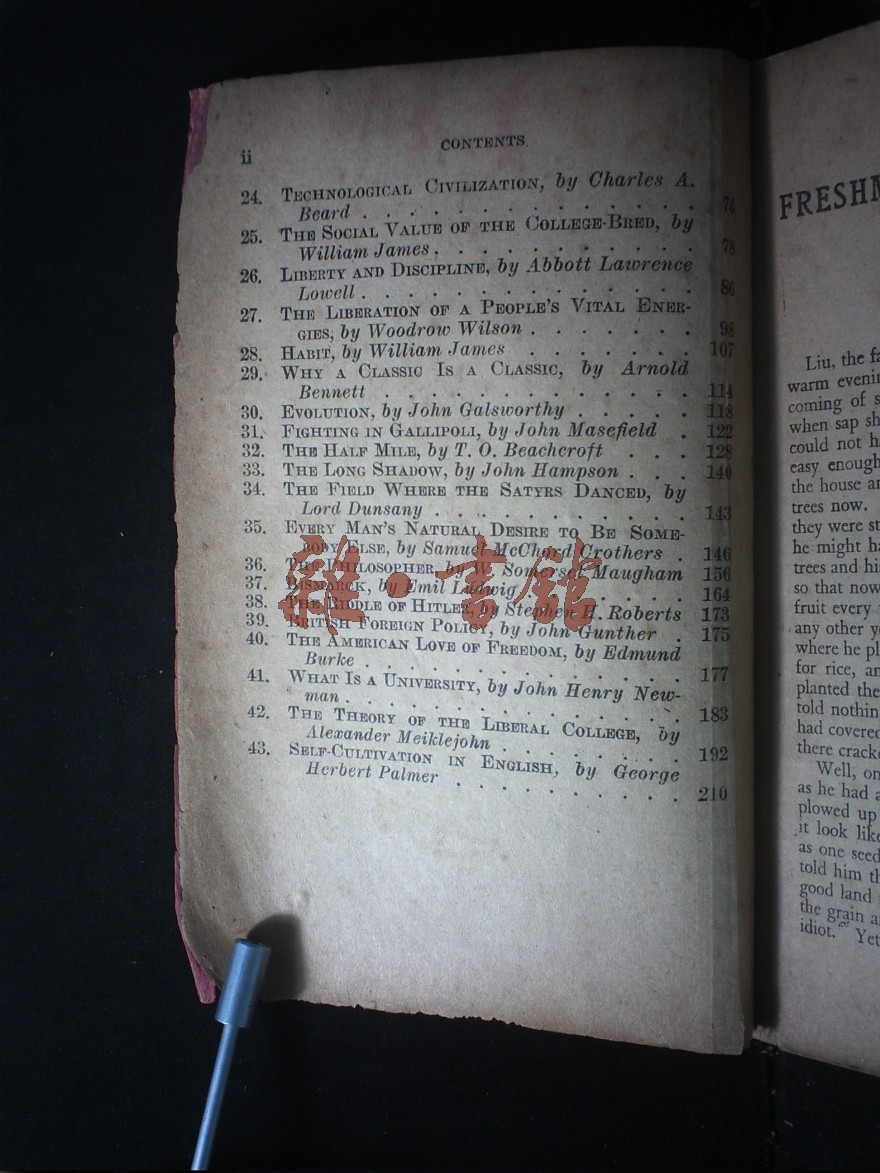 ii
CONTENTS
24. TECHNOLOGICAL CIVILIZATION, by Charles A.
Beard . . . . . . . . . . . . . . 76
25. THE SOCIAL VALUE OF THE COLLEGE-BRED, by
William James . . . . . . . . . . . 78
26. LIBERTY AND DISCIPLINE, by Abbott Lawrence
Lowell . . . . . . . . . . . . . . 86
27. THE LIBERATION OF A PEOPLE'S VITAL ENER-
GIES, by Woodrow Wilson . . . . . . . 98
28. HABIT, by William James . . . . . . . 107
29. WHY A CLASSIC IS A CLASSIC, by Arnold
Bennett . . . . . . . . . . . . . 114
30. EVOLUTION, by John Galsworthy . . . . . 118
31. FIGHTING IN GALLIPOLI, by John Masefield . 122
32. THE HALF MILE, by T. O. Beachcroft . . . 128
33. THE LONG SHADOW, by John Hampson . . . 140
34. THE FIELD WHERE THE SATYRS DANCED, by
Lord Dunsany . . . . . . . . . . . 143
35. EVERY MAN'S NATURAL DESIRE TO BE SOME-
BODY ELSE, by Samuel McChord Crothers . 146
36. THE PHILOSOPHER, by W. Somerset Maugham 156
37. BISMARCK, by Emil Ludwig . . . . . . 164
38. THE RIDDLE OF HITLER, by Stephen H. Roberts 173
39. BRITISH FOREIGN POLICY, by John Gunther . 175
40. THE AMERICAN LOVE OF FREEDOM, by Edmund
Burke . . . . . . . . . . . . . . 177
41. WHAT IS A UNIVERSITY, by John Henry New-
man . . . . . . . . . . . . . . . 183
42. THE THEORY OF THE LIBERAL COLLEGE, by
Alexander Meiklejohn . . . . . . . . 192
43. SELF-CULTIVATION IN ENGLISH, by George
Herbert Palmer . . . . . . . . . . 210
書館
FRESHM
Liu, the fa
warm evenin
coming of s
when sap sh
could not h
easy enough
the house an
trees now.
they were st
he might ha
trees and hi
so that now
fruit every
any other y
where he pl
for rice, an
planted the
told nothin
had covered
there cracke
Well, on
as he had a
plowed up
it look like
as one seed
told him th
good land
the grain a
idiot." Yet